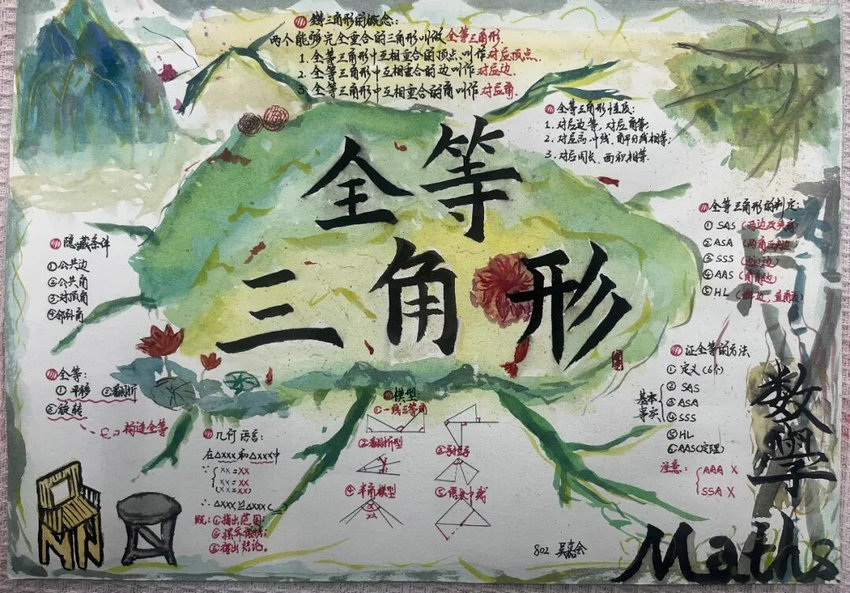 全等
三角形
全等三角形的概念:
两个能够完全重合的三角形叫做全等三角形
1. 全等三角形中互相重合的顶点叫作对应顶点.
2. 全等三角形中互相重合的边叫作对应边.
3. 全等三角形中互相重合的角叫作对应角.
全等三角形性质:
1. 对应边等, 对应角等;
2. 对应高、中线、角平分线相等;
3. 对应周长、面积相等.
全等三角形的判定:
① SAS (两边及夹角)
② ASA
③ SSS
④ AAS
⑤ HL
隐藏条件
①公共边
②公共角
③对顶角
④邻补角
全等:
①平移 ②翻折
③旋转
构造全等
几何语言:
在△XXX和△XXX中
∵ { XX = XX
XX = XX
XX = XX
∴ △XXX≌△XXX
①指出范围
③得出结论.
模型
①一线三等角
②翻折型
③手拉手
④半角模型
⑤倍长中线
证全等的方法
① 定义 (6个)
基本
事实
② SAS
③ ASA
④ SSS
⑤ HL
⑥ AAS(定理)
注意: { AAA X
SSA X
数
學
Maths
802